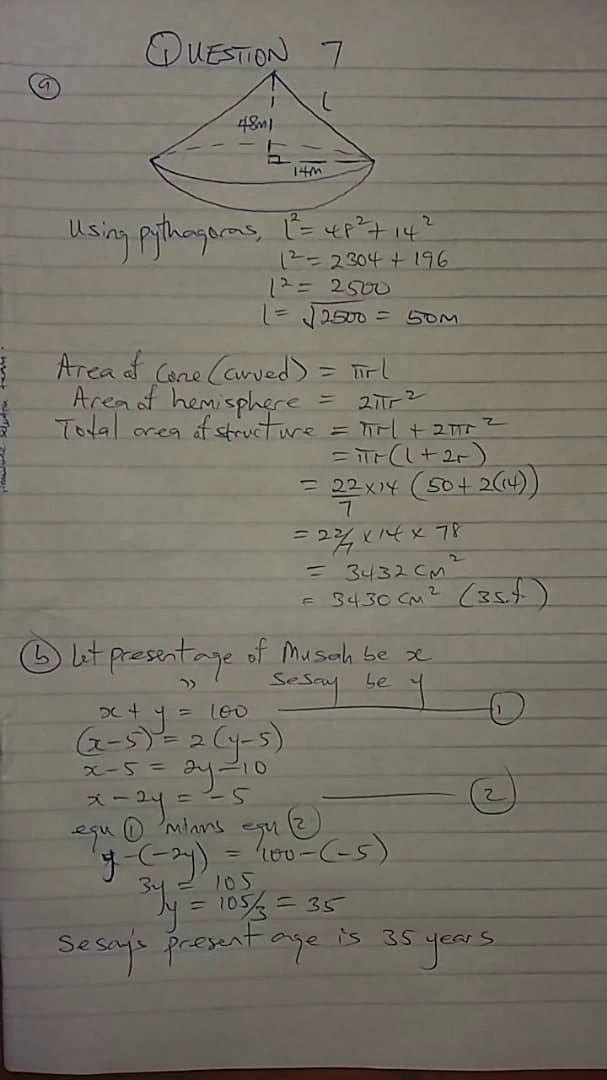 QUESTION 7
(a)
l
48m
14m
Using pythagoras, l² = 48² + 14²
l² = 2304 + 196
l² = 2500
l = √2500 = 50m
Area of Cone (curved) = πrl
Area of hemisphere = 2πr²
Total area of structure = πrl + 2πr²
= πr(l + 2r)
= 22/7 × 14 (50 + 2(14))
= 22/7 × 14 × 78
= 3432 cm²
= 3430 cm² (3s.f)
(b) Let present age of Musah be x
" Sesay be y
x + y = 100 ①
(x-5) = 2(y-5)
x-5 = 2y-10
x-2y = -5 ②
equ ① minus equ ②
y-(-2y) = 100-(-5)
3y = 105
y = 105/3 = 35
Sesay's present age is 35 years